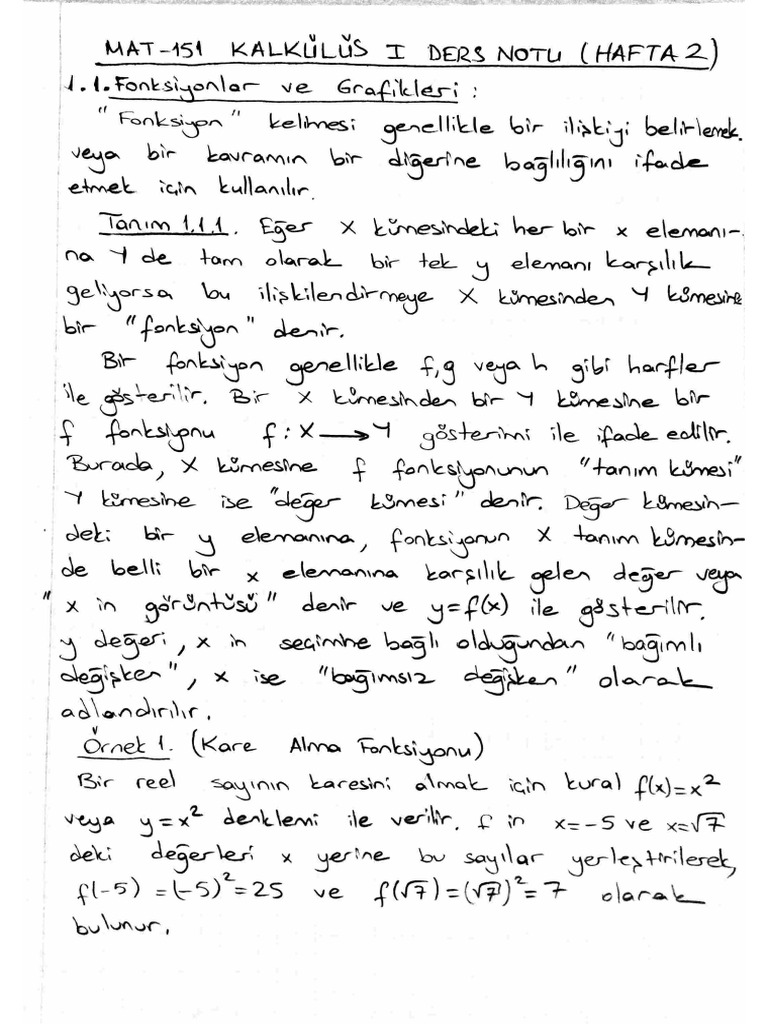 MAT-151 KALKÜLÜS I DERS NOTU (HAFTA 2)
1.1. Fonksiyonlar ve Grafikleri:
"Fonksiyon" kelimesi genellikle bir ilişkiyi belirlemek
veya bir kavramın bir diğerine bağlılığını ifade
etmek için kullanılır.
Tanım 1.1.1. Eğer X kümesindeki her bir x elemanı-
na Y de tam olarak bir tek y elemanı karşılık
geliyorsa bu ilişkilendirmeye X kümesinden Y kümesine
bir "fonksiyon" denir.
Bir fonksiyon genellikle f,g veya h gibi harfler
ile gösterilir. Bir X kümesinden bir Y kümesine bir
f fonksiyonu f : X → Y gösterimi ile ifade edilir.
Burada, X kümesine f fonksiyonunun "tanım kümesi"
Y kümesine ise "değer kümesi" denir. Değer kümesin-
deki bir y elemanına, fonksiyonun X tanım kümesin-
de belli bir x elemanına karşılık gelen değer veya
"x in görüntüsü" denir ve y=f(x) ile gösterilir.
y değeri, x in seçimine bağlı olduğundan "bağımlı
değişken", x ise "bağımsız değişken" olarak
adlandırılır.
Örnek 1. (Kare Alma Fonksiyonu)
Bir reel sayının karesini almak için kural f(x)=x²
veya y=x² denklemi ile verilir. f in x=-5 ve x=√7
deki değerleri x yerine bu sayılar yerleştirilerek,
f(-5) =(-5)²=25 ve f(√7)=(√7)²=7 olarak
bulunur.